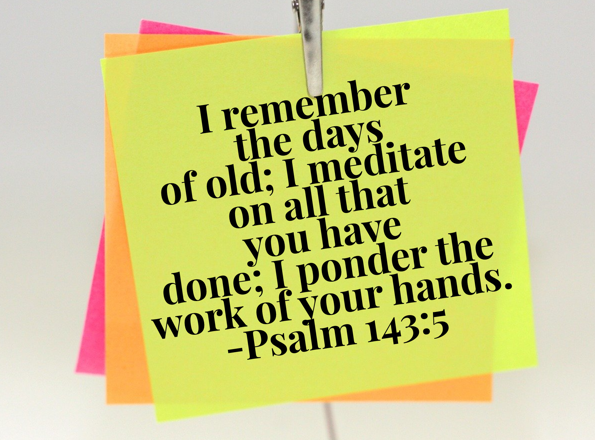 I remember
the days
of old; I meditate
on all that
you have
done; I ponder the
work of your hands.
-Psalm 143:5